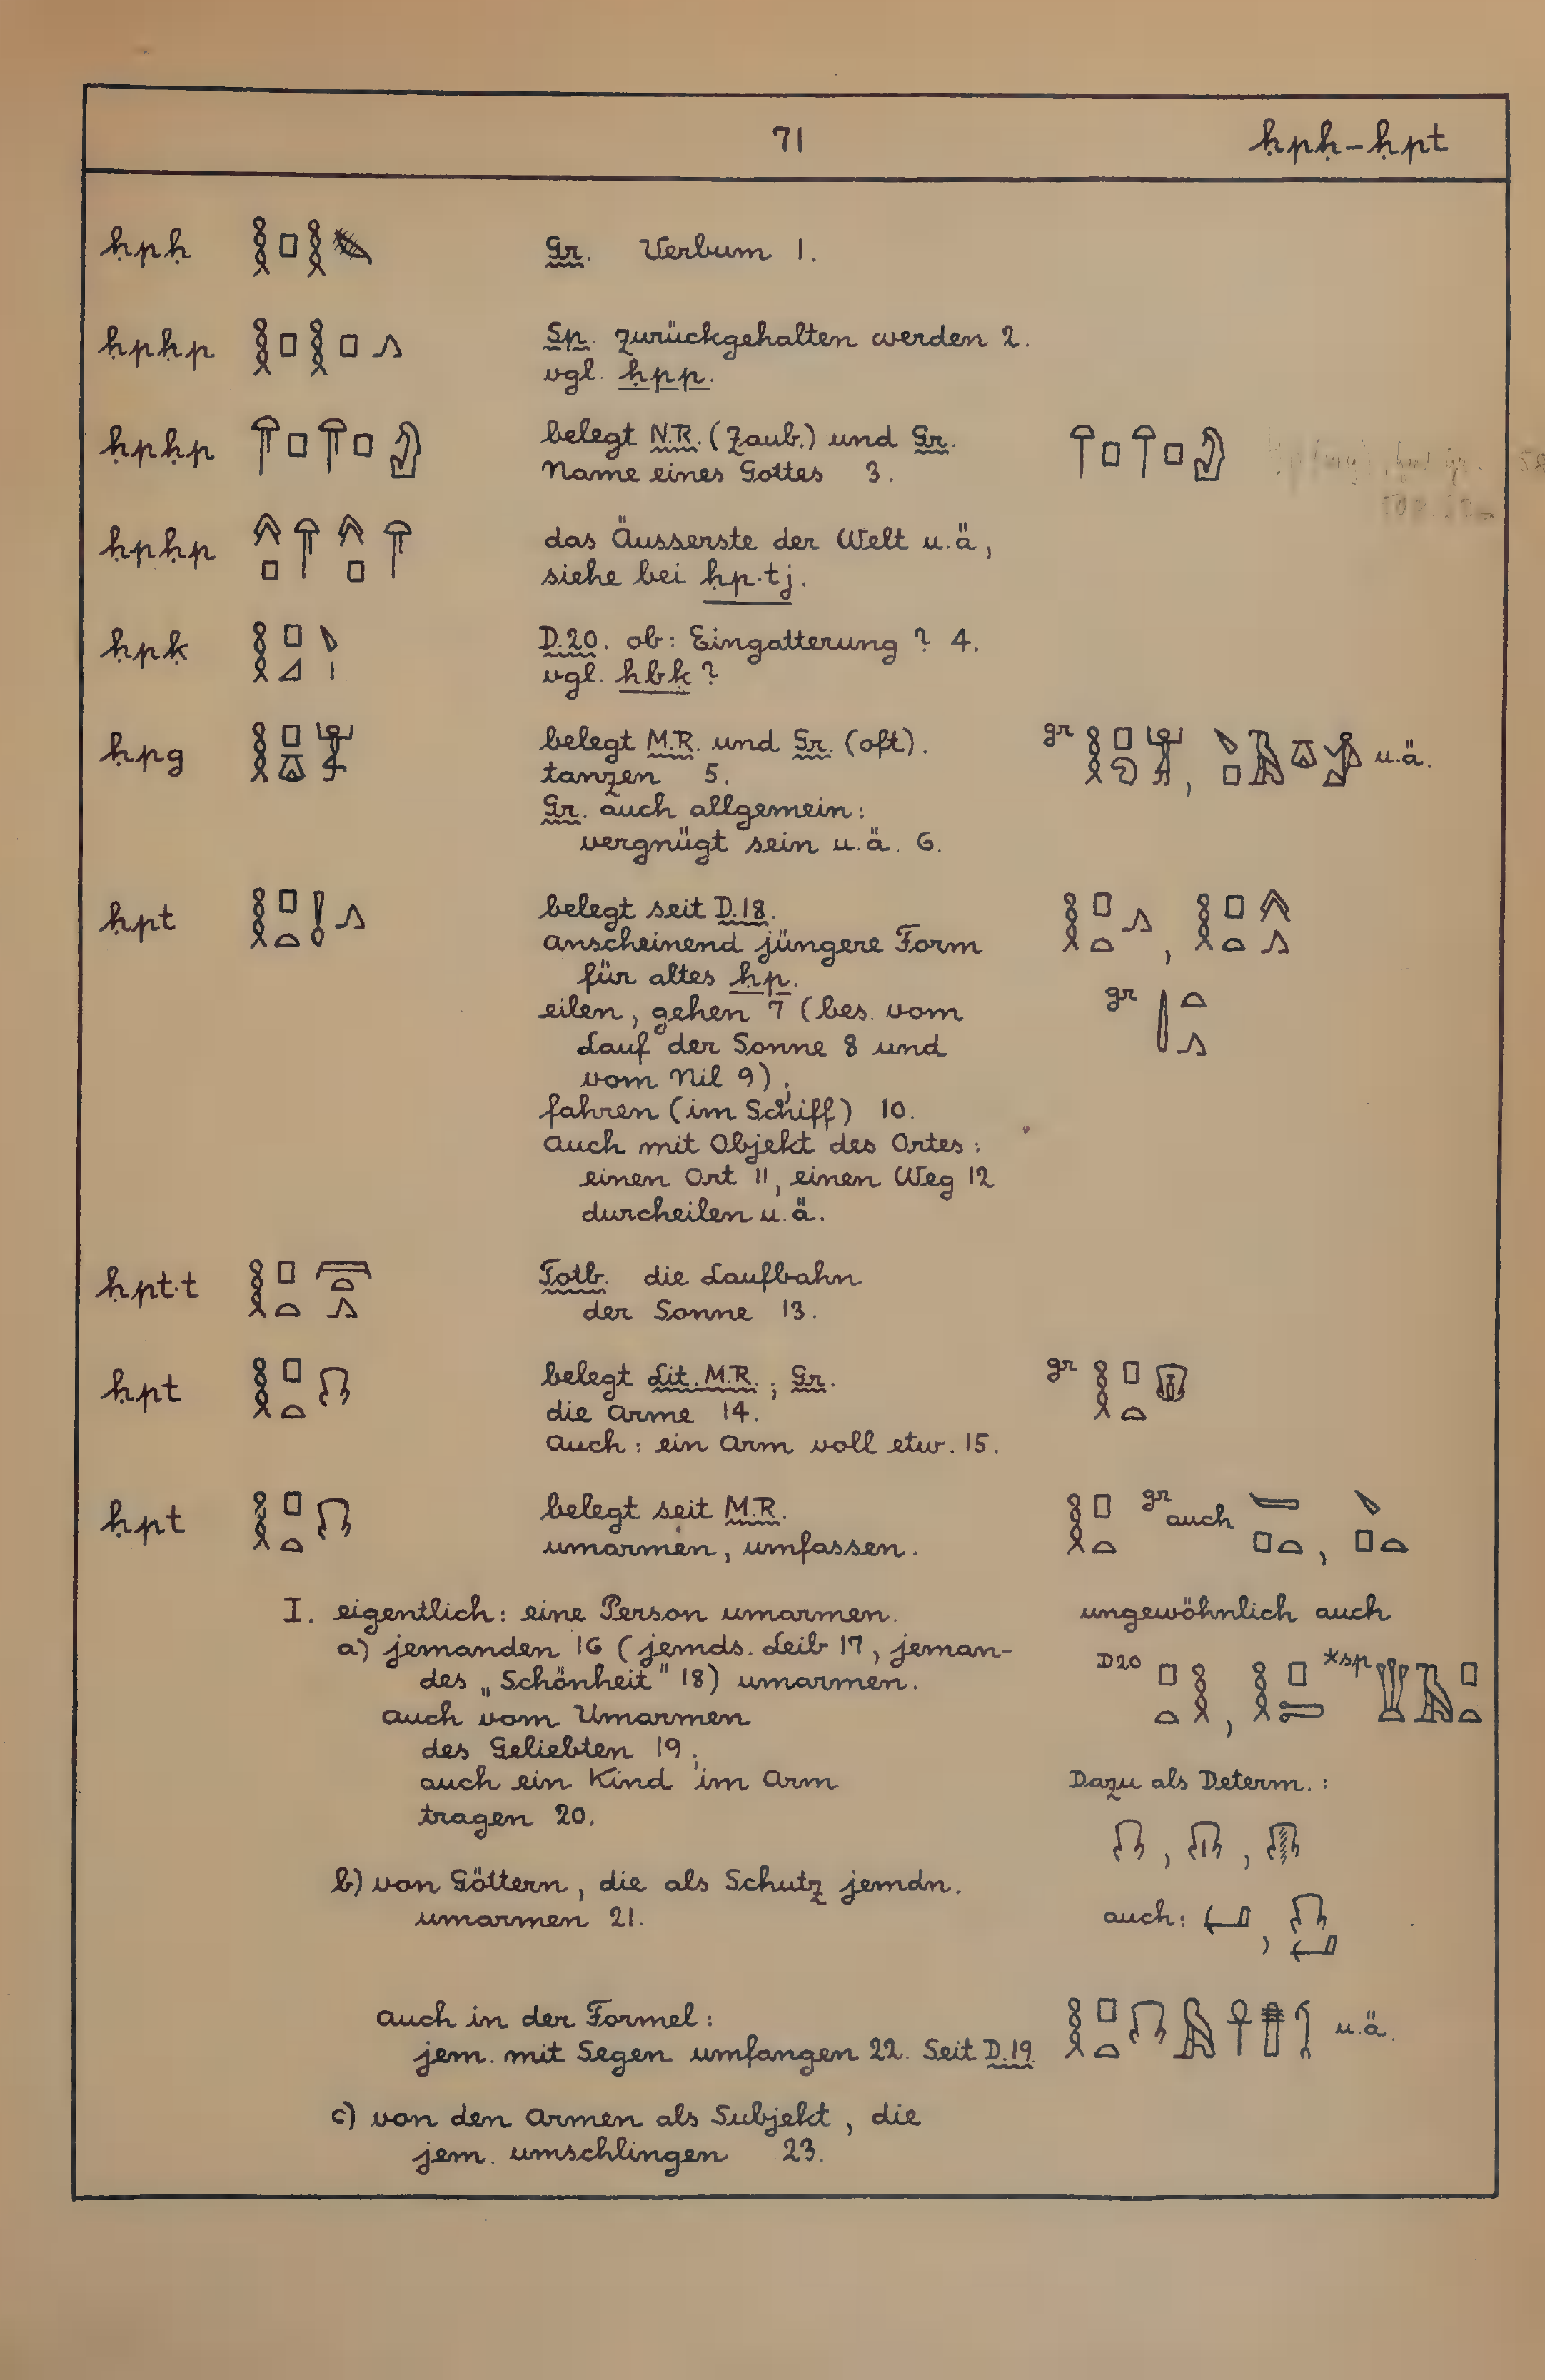 71 ḥpḥ–ḥpt
ḥpḥ Gr. Verbum 1.
ḥpḥp Sp. zurückgehalten werden 2.
vgl. ḥpp.
ḥpḥp belegt N.R. (Zaub.) und Gr.
Name eines Gottes 3.
ḥpḥp das Äusserste der Welt u.ä,
siehe bei ḥp.tj.
ḥpḳ D.20. ob: Eingatterung? 4.
vgl. hbḳ?
ḥpg belegt M.R. und Gr. (oft). gr u.ä.
tanzen 5.
Gr. auch allgemein:
vergnügt sein u.ä. 6.
ḥpt belegt seit D.18.
anscheinend jüngere Form
für altes ḥp.
eilen, gehen 7 (bes. vom gr
Lauf der Sonne 8 und
vom Nil 9);
fahren (im Schiff) 10.
auch mit Objekt des Ortes:
einen Ort 11, einen Weg 12
durcheilen u.ä.
ḥpt.t Totb. die Laufbahn
der Sonne 13.
ḥpt belegt Lit. M.R.; Gr. gr
die Arme 14.
auch: ein Arm voll etw. 15.
ḥpt belegt seit M.R. gr auch
umarmen, umfassen.
I. eigentlich: eine Person umarmen. ungewöhnlich auch
a) jemanden 16 (jemds. Leib 17, jeman- D20 *sp
des „Schönheit" 18) umarmen.
auch vom Umarmen
des Geliebten 19;
auch ein Kind im Arm Dazu als Determ.:
tragen 20.
b) von Göttern, die als Schutz jemdn.
umarmen 21. auch:
auch in der Formel:
jem. mit Segen umfangen 22. Seit D.19. u.ä.
c) von den Armen als Subjekt, die
jem. umschlingen 23.